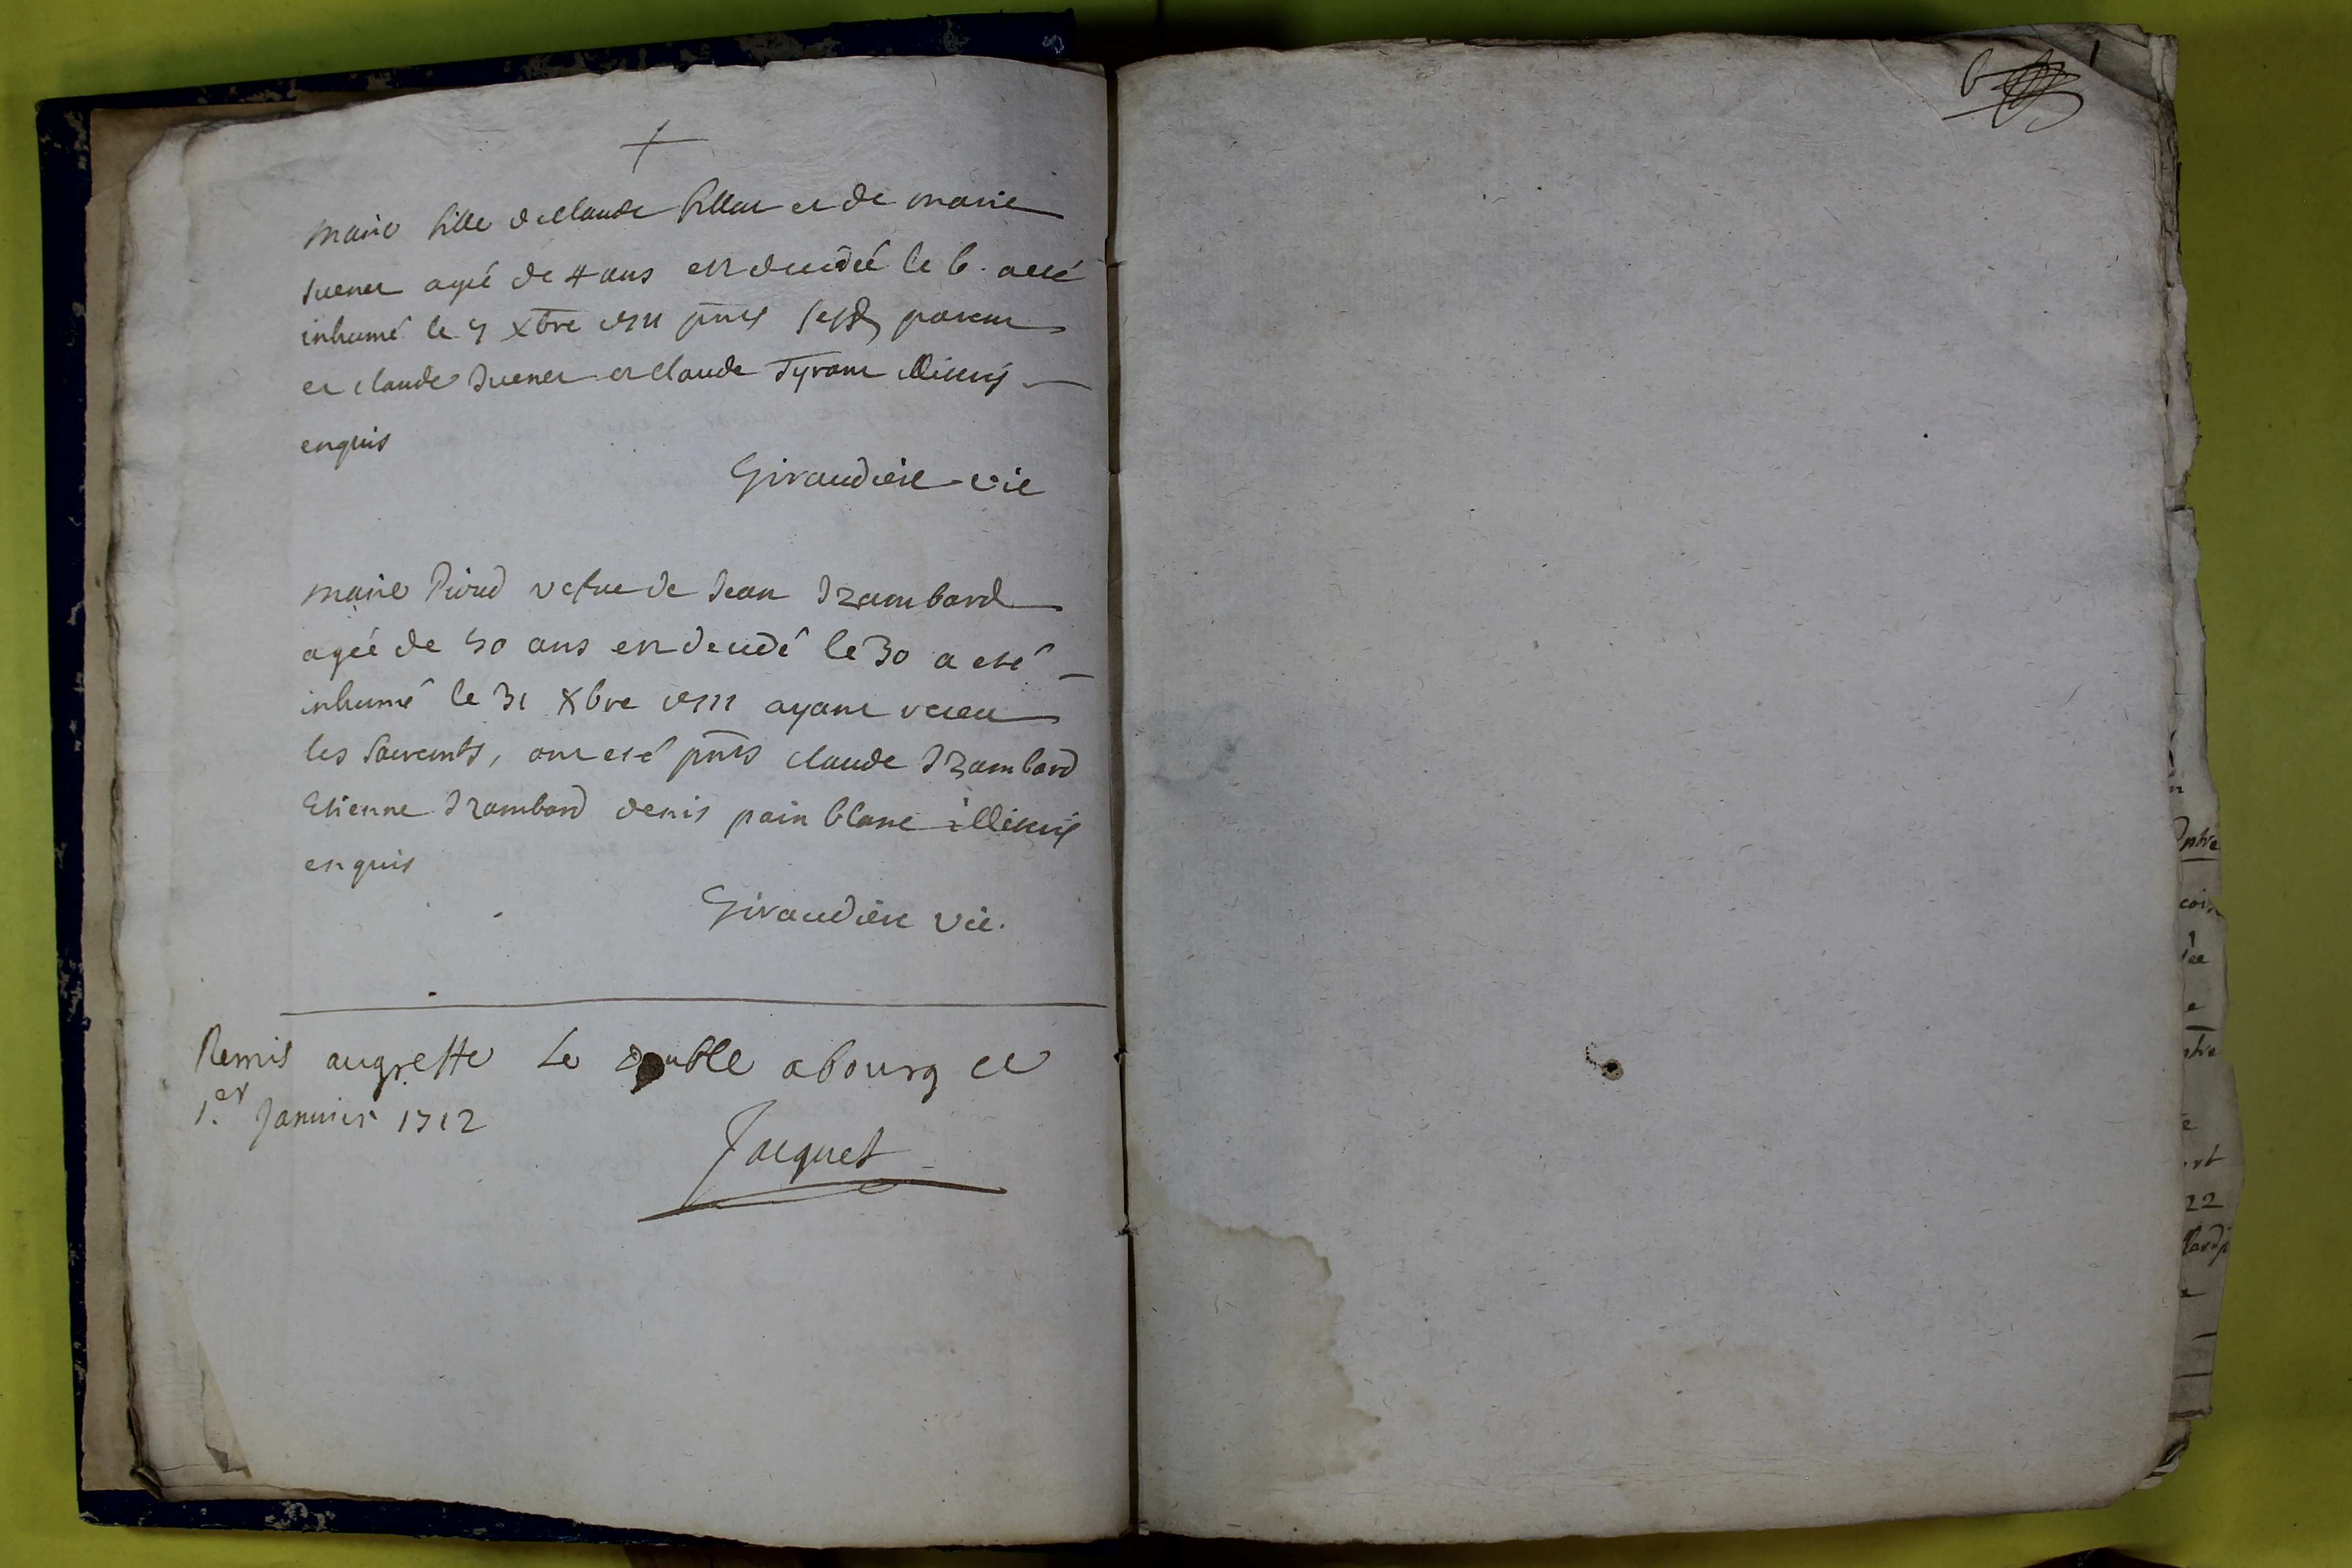 marie fille de claude fillar et de marie
suener agée de 4 ans est decedée le 6. a esté
inhumé le 7 xbre 1711 pnts parens
et claude suener et claude Tyrant illiterés
enquis
Giraudière vic
marie Pirod vefue de Jean Izambard
agée de 50 ans est decedé le 30 a esté
inhumé le 31 xbre 1711 ayant receu
les sacremts, ont esté pnts claude Izambard
Etienne Izambard denis pain blanc illiterés
enquis
Giraudière vic.
Remis augreffe Le double abourg ce
1.er Janvier 1712
Jacquet
6
22